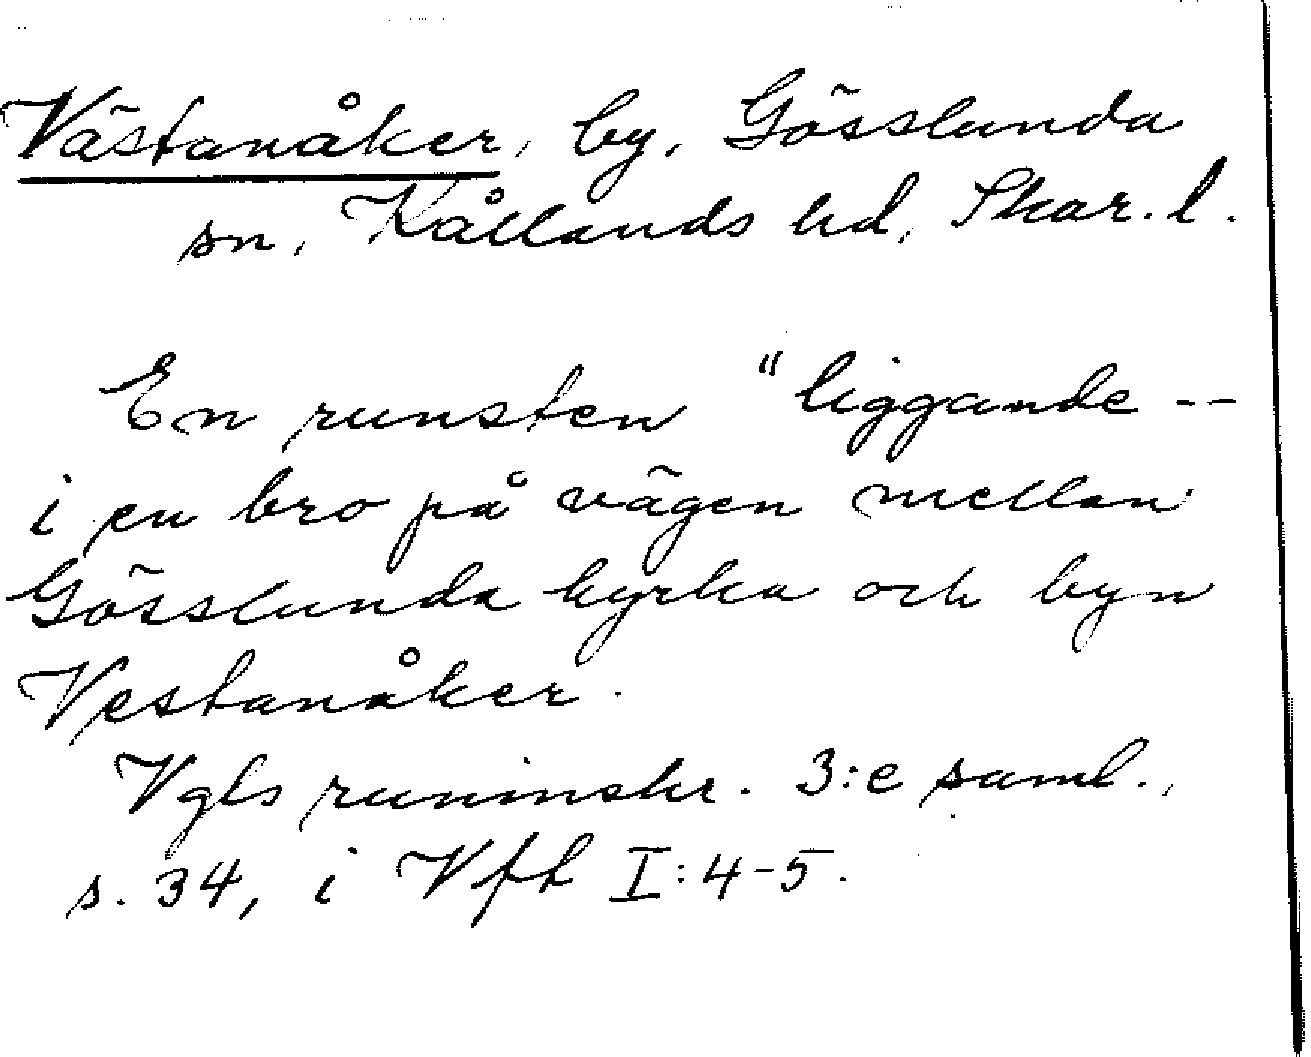 Västanåker, by, Gösslunda
sn, Kållands hd, Skar. l.
En runsten "liggande --
i en bro på vägen mellan
Gösslunda kyrka och byn
Vestanåker.
Vgls runinskr. 3:e saml.,
s. 34, i Vfh I:4-5.